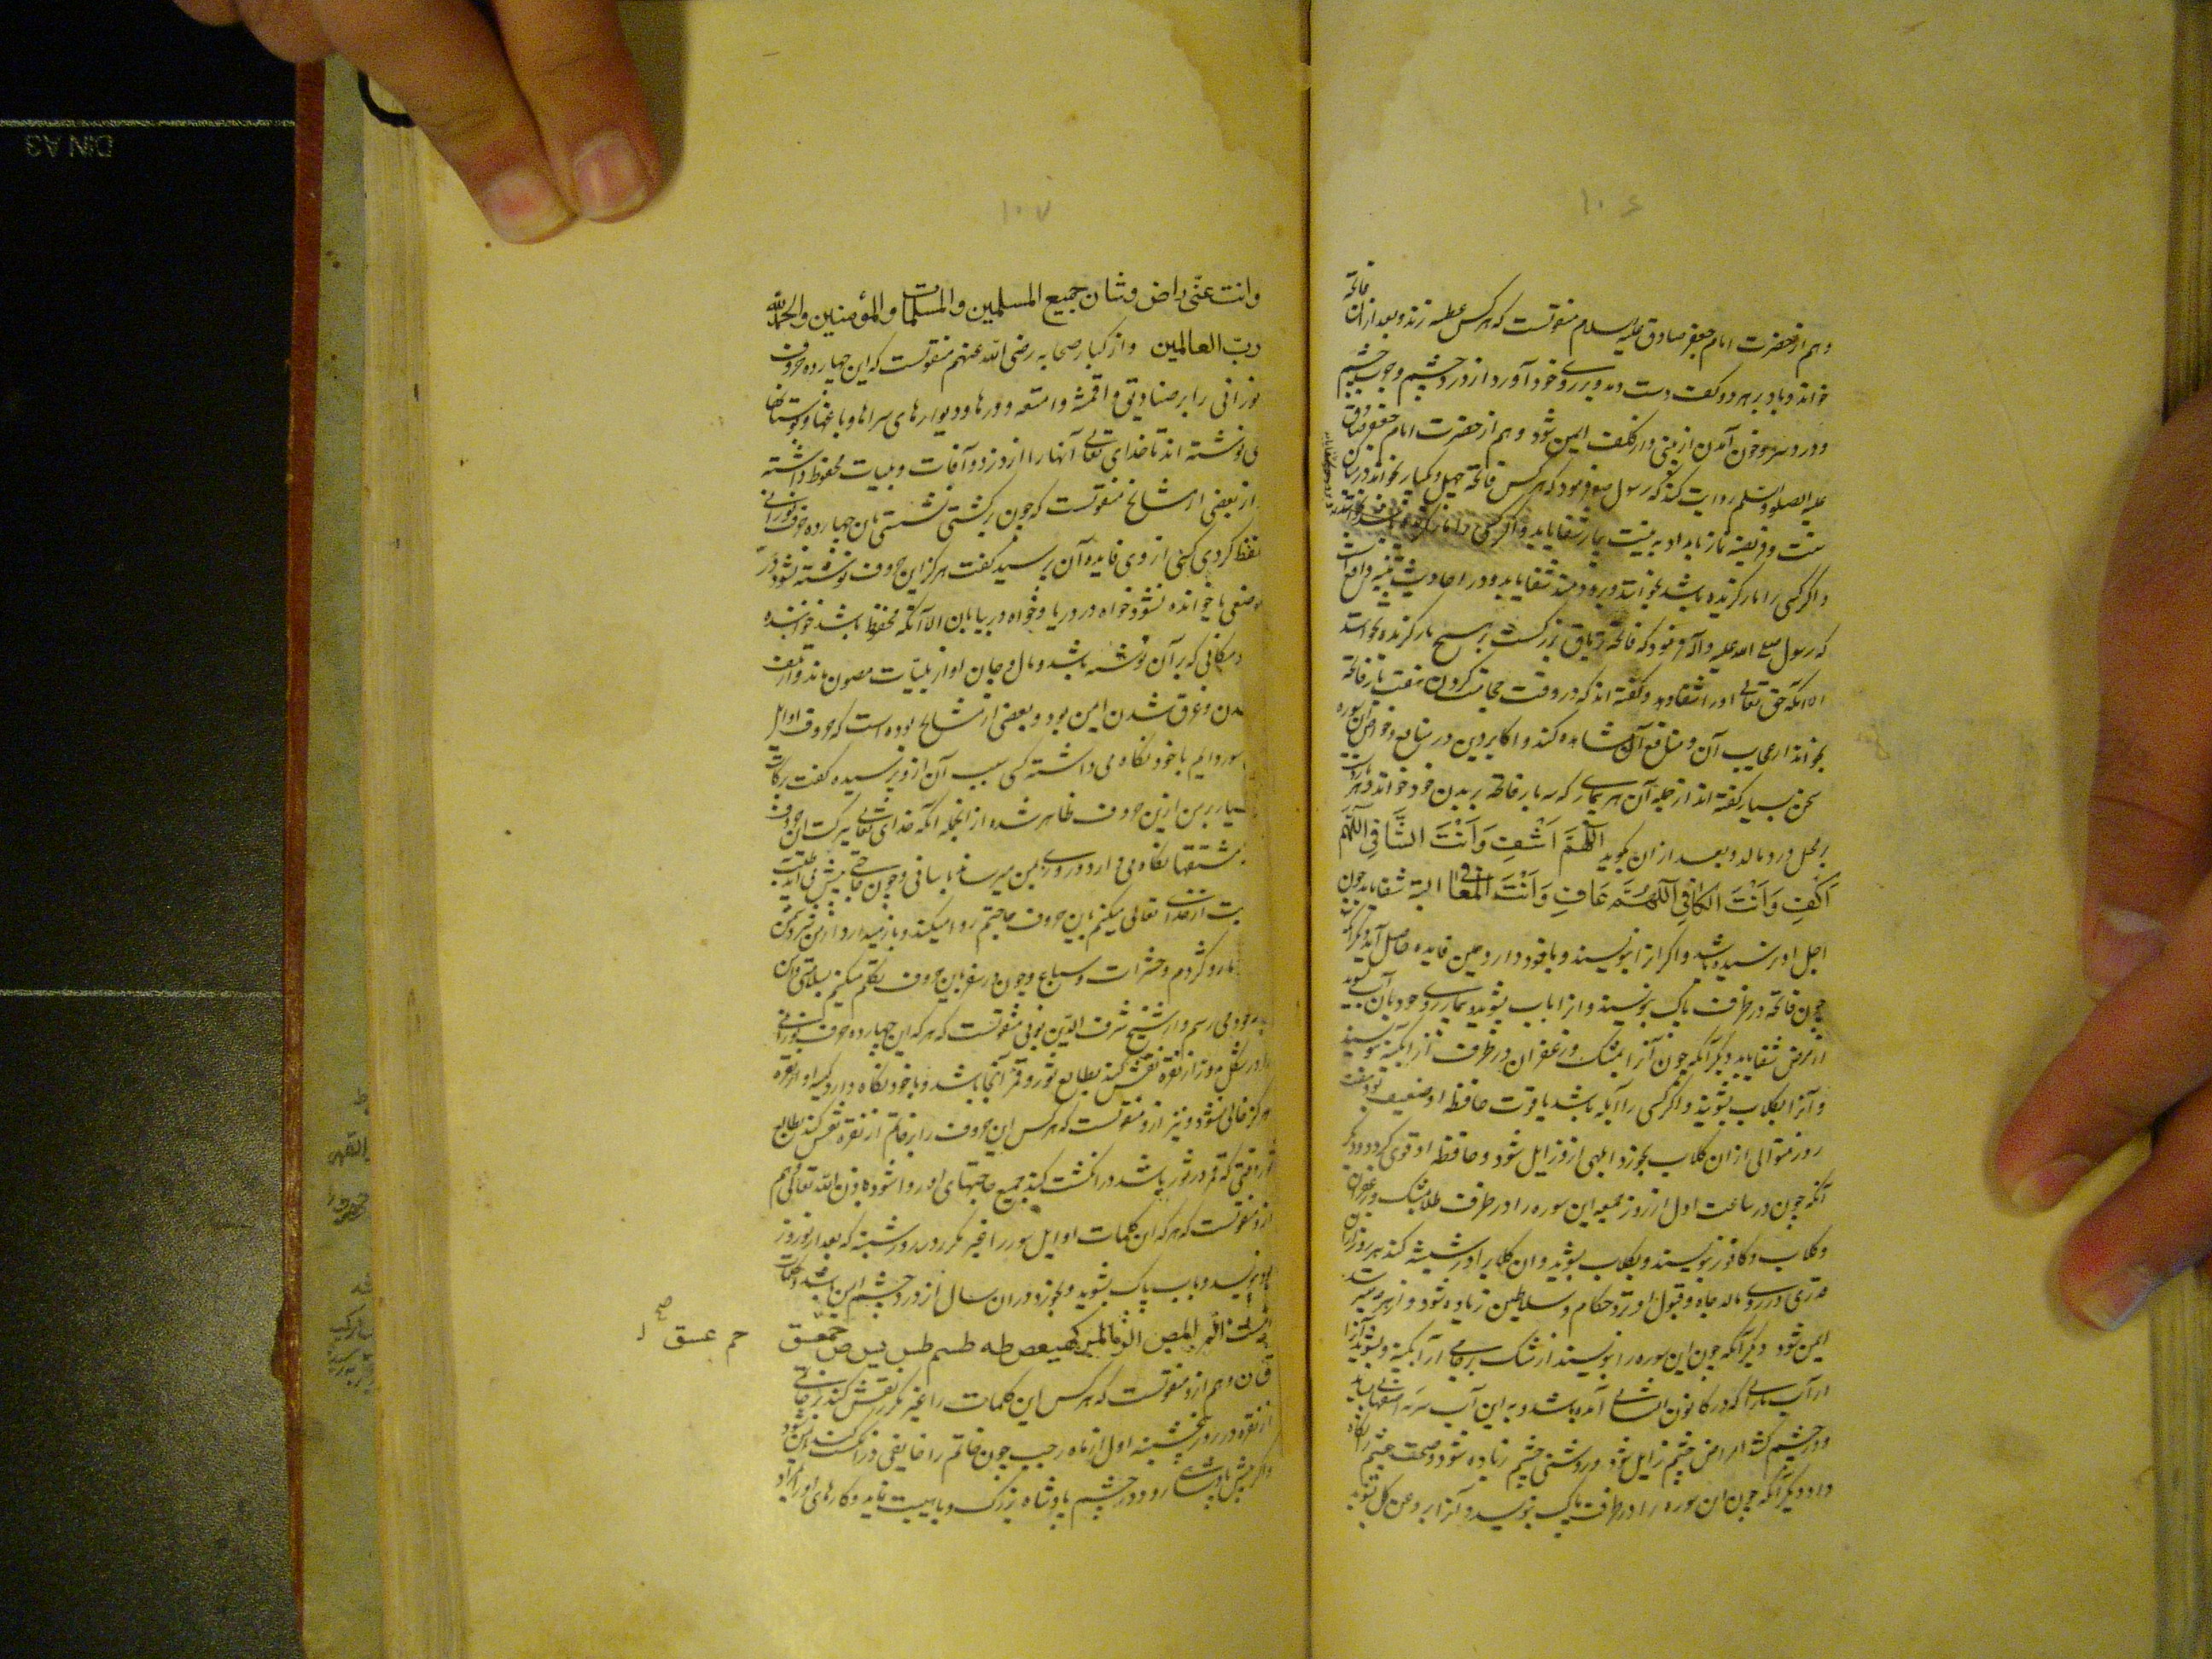 ۱۰۶
وهم از حضرت امام جعفر صادق علیه السلام منقولست که هر کس عطسه زند و بعد از آن فاتحه
خواند و باد بر هر دو کف دست دمد و بر روی خود آورد از درد چشم و
و درد سر و خون آمدن از بینی و از کلف ایمن شود وهم از حضرت امام جعفر صادق
علیه الصلوة والسلم روایت کنند که رسول فرمود که هر کس فاتحه چهل و یکبار بخواند در میان
سنت و فریضه نماز بامداد به نیت بیمار شفا یابد و اگر کسی را
و اگر کسی را مار گزیده باشد بخوانند و برو دمند شفا یابد و در احادیث نبویه واقع است
که رسول صلی الله علیه وآله فرمود که فاتحه تریاق بزرگست بر هیچ مار گزیده نخوانند
الا انکه حق تعالی او را شفا دهد و گفته اند که در وقت حجامت کردن هفت بار فاتحه
بخواند از عجایب آن و منافع آن مشاهده کند و اکابر دین در منافع و خواص این سوره
سخن بسیار گفته اند از جمله آن هر بیماری که سه بار فاتحه بر بدن خود خواند و هر بار دست
بر محل درد مالد و بعد از ان بگوید اللّهُمَّ اَشْفِ وَاَنْتَ الشَّافِی اللّهُمَّ
اَکْفِ وَاَنْتَ الکَافِی اَللّهُمَّ عَافِ وَاَنْتَ المُعَافِی البته شفا یابد چون
اجل او نرسیده باشد و اگر انرا بنویسند و با خود دارد همین فایده حاصل آید دیگر آنکه
چون فاتحه در ظرفی پاک بنویسند و انرا بآب بشویند و بیمار روی خود بآن آب بشوید
از مرض شفا یابد دیگر آنکه چون آنرا بمشک و زعفران در ظرف از آبگینه بنویسند
و آنرا بگلاب بشویند و اگر کسی را ابله باشد یا قوت حافظه او ضعیف بود هفت
روز متوالی از ان گلاب بخورد ابلهی از و زایل شود و حافظه او قوی گردد و دیگر
آنکه چون در ساعت اول از روز جمعه این سوره را در ظرف طلا بمشک و زعفران
و گلاب و کافور بنویسند و بگلاب بشویند و ان گلاب را در شیشه کنند هر روز از ان
قدری در روی مالد جاه و قبول او نزد حکام و سلاطین زیاده شود و از هر چه میترسد
ایمن شود دیگر آنکه چون این سوره را بنویسند از مشک بر جامی از آبگینه و بشویند آنرا
از آب بارانی که در کانون الثانی آمده باشد و به این آب سرمه اصفهانی بساید
و در چشم کشد امراض چشم زایل شود و روشنی چشم زیاده شود و صحت چشم را نگاه
دارد و دیگر آنکه چون این سوره را در ظرف پاک بنویسد و آنرا بروغن گل بشوید
۱۰۷
وانت عنّی راض وشان جمیع المسلمین والمسلمات والمؤمنین والحمدلله
ربّ العالمین واز کبار صحابه رضی الله عنهم منقولست که این چهارده حروف
نورانی را بر صنادیق و اقمشه و امتعه و درها و دیوارهای سراها و باغها و بوستانها
می نوشته اند تا خدای تعالی آنها را از دزد و آفات و بلیات محفوظ داشته
از بعضی از مشایخ منقولست که چون بر کشتی نشستی بان چهارده حرف نورانی
تلفظ کردی کسی از وی فایده آن پرسید گفت هرگز این حروف نوشته نشود در
موضعی یا خوانده نشود خواه در دریا و خواه در بیابان الا آنکه محفوظ باشد خواننده
و مکانی که بر آن نوشته باشد و مال و جان او از بلیّات مصون ماند و از تلف
شدن و غرق شدن ایمن بود و بعضی از مشایخ بوده است که حروف اوایل
سور دایم با خود نگاه می داشته کسی سبب آن از و پرسیده گفت برکات
بسیار بر من از ین حروف ظاهر شده از انجمله آنکه خدای تعالی ببرکت این حروف
نگاه می دارد و روزی بمن میرساند بآسانی و چون حاجتی پیش می آید
از خدای تعالی میکنم باین حروف حاجتم روا میکند و باز میدارد از من شر دشمن
مار و کژدم و حشرات و سباع و چون در سفر باین حروف تکلم میکنم بسلامتی و امن
خود می رسم و از شیخ شرف الدین بونی منقولست که هر که این چهارده حروف نورانی
را در شکل مدور از نقره نقش کند بطالع ثور و قمر آنجا باشد و با خود نگاه دارد کیسه او از نقره
هرگز خالی نشود و نیز از و منقولست که هر کس این حروف را بر خاتم از نقره نقش کند بطالع
ثور وقتی که قمر در ثور باشد در انگشت کند جمیع حاجتهای او روا شود باذن الله تعالی وهم
از و منقولست که هر که این کلمات اوایل سور را غیر مکرر در روز شنبه که بعد از نوروز
بود بنویسد و بآب پاک بشوید و بخورد در ان سال از درد چشم ایمن باشد و کلمات
اینست الم المص الر المر کهیعص طه طسم طس یس ص حمعسق
حم عسق صح
ق ن وهم از و منقولست که هر کس این کلمات را غیر مکرر نقش کند بر خاتمی
از نقره در روز پنجشنبه اول از ماه رجب چون خاتم را خایفی در انگشت کند ایمن شود
و اگر پیش پادشاهی رود در چشم پادشاه بزرگ و با هیبت نماید و کارهای او برآید
DIN A3